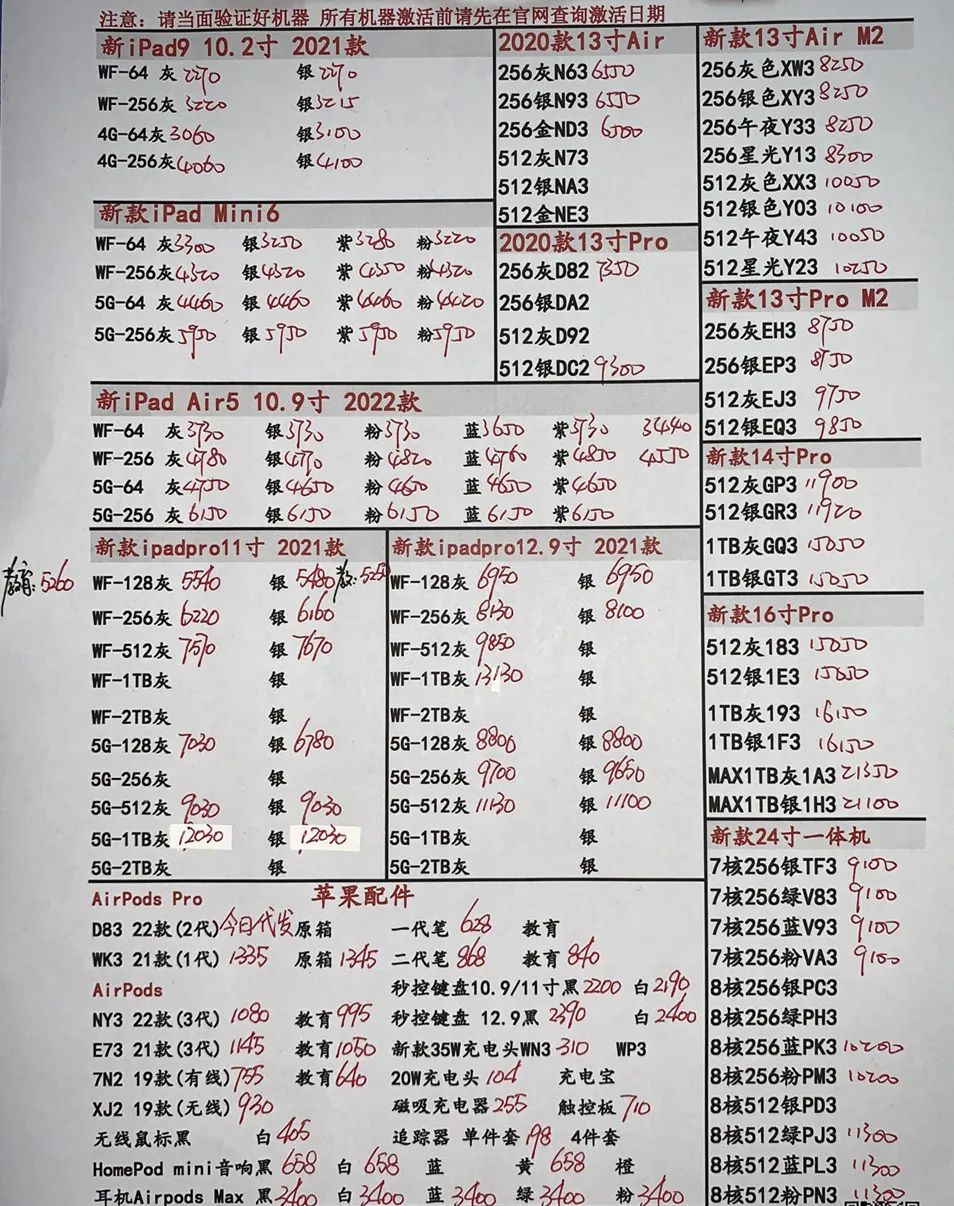 注意：请当面验证好机器 所有机器激活前请先在官网查询激活日期
新iPad9 10.2寸 2021款
WF-64 灰2270 银2270
WF-256灰3220 银3215
4G-64灰3060 银3100
4G-256灰4060 银4100
新款iPad Mini6
WF-64 灰3300 银3250 紫3280 粉3220
WF-256灰4320 银4320 紫4350 粉4320
5G-64 灰4460 银4460 紫4460 粉4420
5G-256灰5950 银5950 紫5950 粉5950
2020款13寸Air
256灰N63 6550
256银N93 6550
256金ND3 6500
512灰N73
512银NA3
512金NE3
2020款13寸Pro
256灰D82 7350
256银DA2
512灰D92
512银DC2 9300
新iPad Air5 10.9寸 2022款
WF-64 灰3730 银3730 粉3730 蓝3650 紫3730 34440
WF-256 灰4780 银4770 粉4820 蓝4760 紫4850 4550
5G-64 灰4750 银4650 粉4650 蓝4650 紫4650
5G-256 灰6150 银6150 粉6150 蓝6150 紫6150
新款ipadpro11寸 2021款
教育:5260 WF-128灰 5540 银 5480 教:5250
WF-256灰 6220 银 6160
WF-512灰 7570 银 7670
WF-1TB灰 银
WF-2TB灰 银
5G-128灰 7030 银 6780
5G-256灰 银
5G-512灰 9030 银 9030
5G-1TB灰 12030 银 12030
5G-2TB灰 银
新款ipadpro12.9寸 2021款
WF-128灰 6950 银 6950
WF-256灰 8130 银 8100
WF-512灰 9850 银
WF-1TB灰 13130 银
WF-2TB灰 银
5G-128灰 8800 银 8800
5G-256灰 9700 银 9650
5G-512灰 11130 银 11100
5G-1TB灰 银
5G-2TB灰 银
AirPods Pro 苹果配件
D83 22款(2代)今日代发原箱 一代笔 628 教育
WK3 21款(1代) 1335 原箱 1345 二代笔 868 教育 840
AirPods 秒控键盘10.9/11寸黑2200 白2190
NY3 22款(3代) 1080 教育995 秒控键盘 12.9黑 2390 白2400
E73 21款(3代) 1145 教育1050 新款35W充电头WN3 310 WP3
7N2 19款(有线)755 教育640 20W充电头 104 充电宝
XJ2 19款(无线)930 磁吸充电器255 触控板710
无线鼠标黑 白405 追踪器 单件套198 4件套
HomePod mini音响黑 658 白 658 蓝 黄 658 橙
耳机Airpods Max 黑3400 白3400 蓝 3400 绿 3400 粉 3400
新款13寸Air M2
256灰色XW3 8250
256银色XY3 8250
256午夜Y33 8250
256星光Y13 8300
512灰色XX3 10050
512银色Y03 10100
512午夜Y43 10050
512星光Y23 10250
新款13寸Pro M2
256灰EH3 8750
256银EP3 8750
512灰EJ3 9750
512银EQ3 9850
新款14寸Pro
512灰GP3 11900
512银GR3 11920
1TB灰GQ3 15050
1TB银GT3 15050
新款16寸Pro
512灰183 15050
512银1E3 15050
1TB灰193 16150
1TB银1F3 16150
MAX1TB灰1A3 21350
MAX1TB银1H3 21100
新款24寸一体机
7核256银TF3 9100
7核256绿V83 9100
7核256蓝V93 9100
7核256粉VA3 9100
8核256银PC3
8核256绿PH3
8核256蓝PK3 10200
8核256粉PM3 10200
8核512银PD3
8核512绿PJ3 11300
8核512蓝PL3 11300
8核512粉PN3 11300